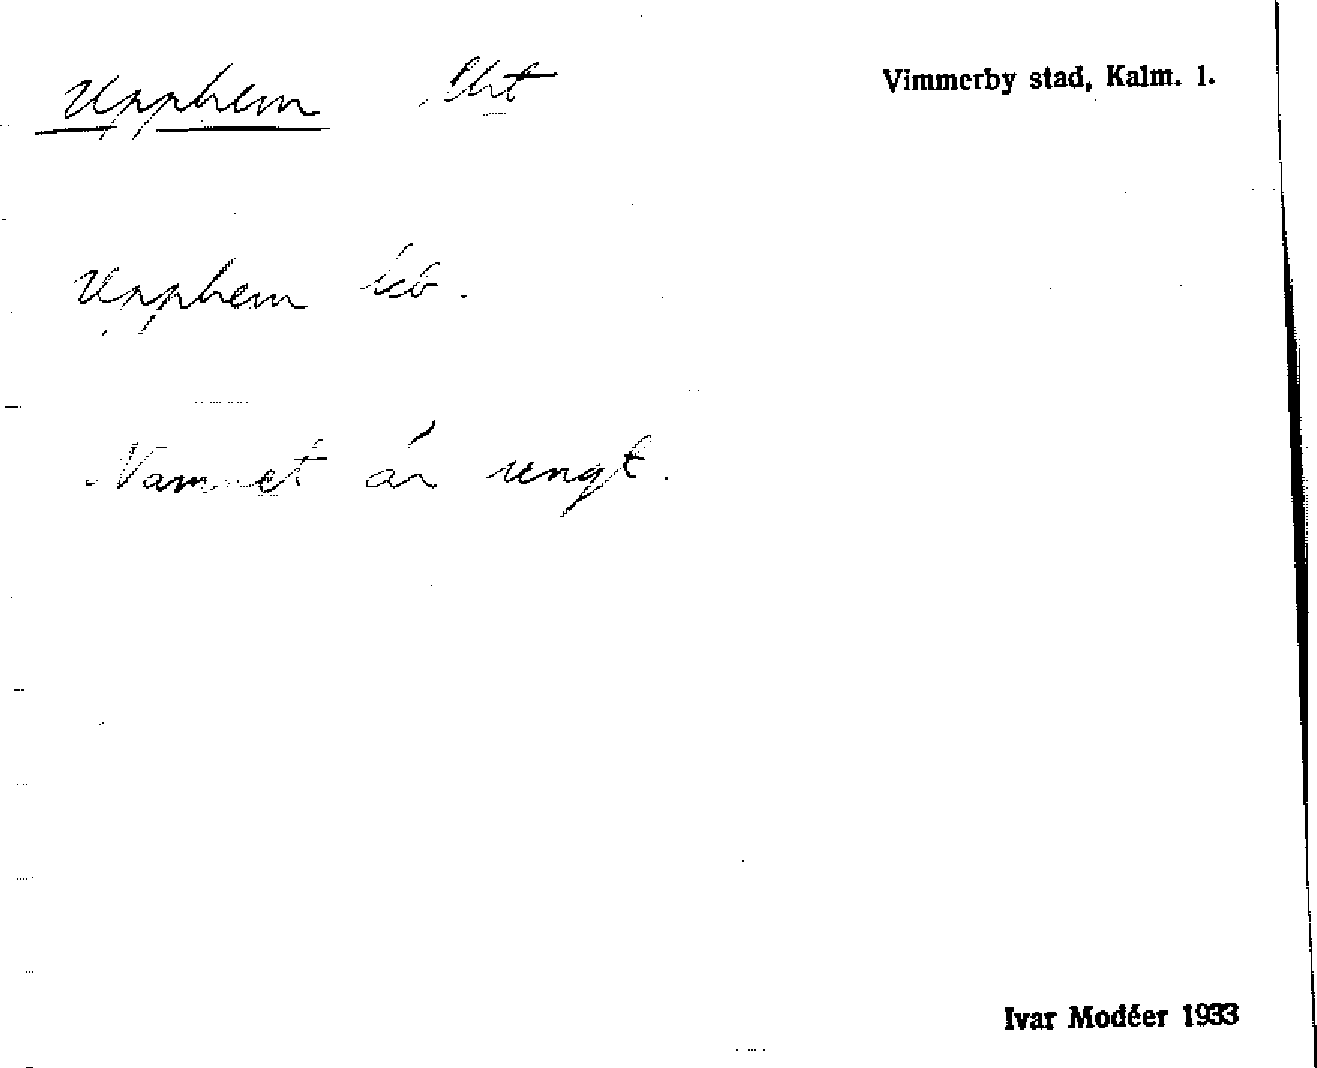 Upphem Lht Vimmerby stad, Kalm. l.
Upphem
Namnet är ungt.
Ivar Modéer 1933